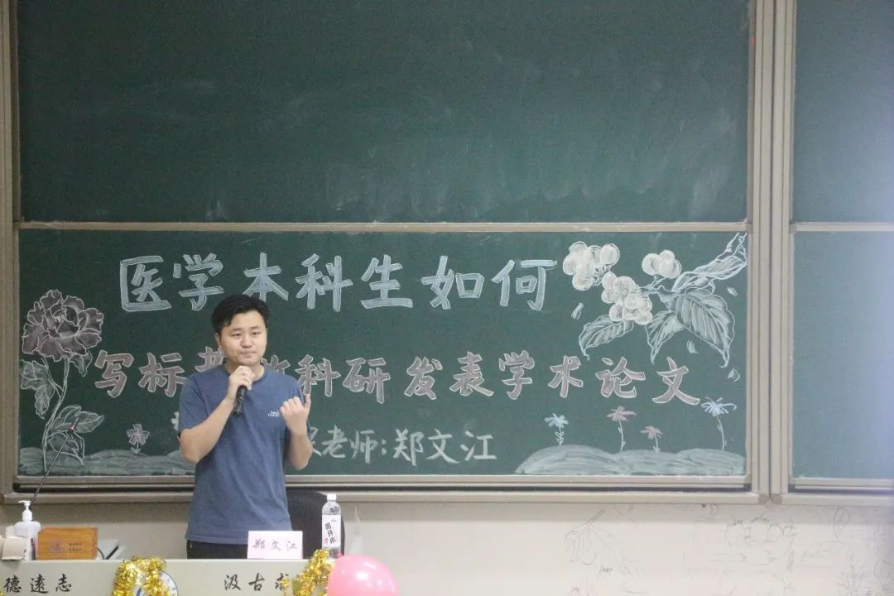 医学本科生如何
写标书做科研发表学术论文
老师:郑文江
郑文江
德远志
汲古求